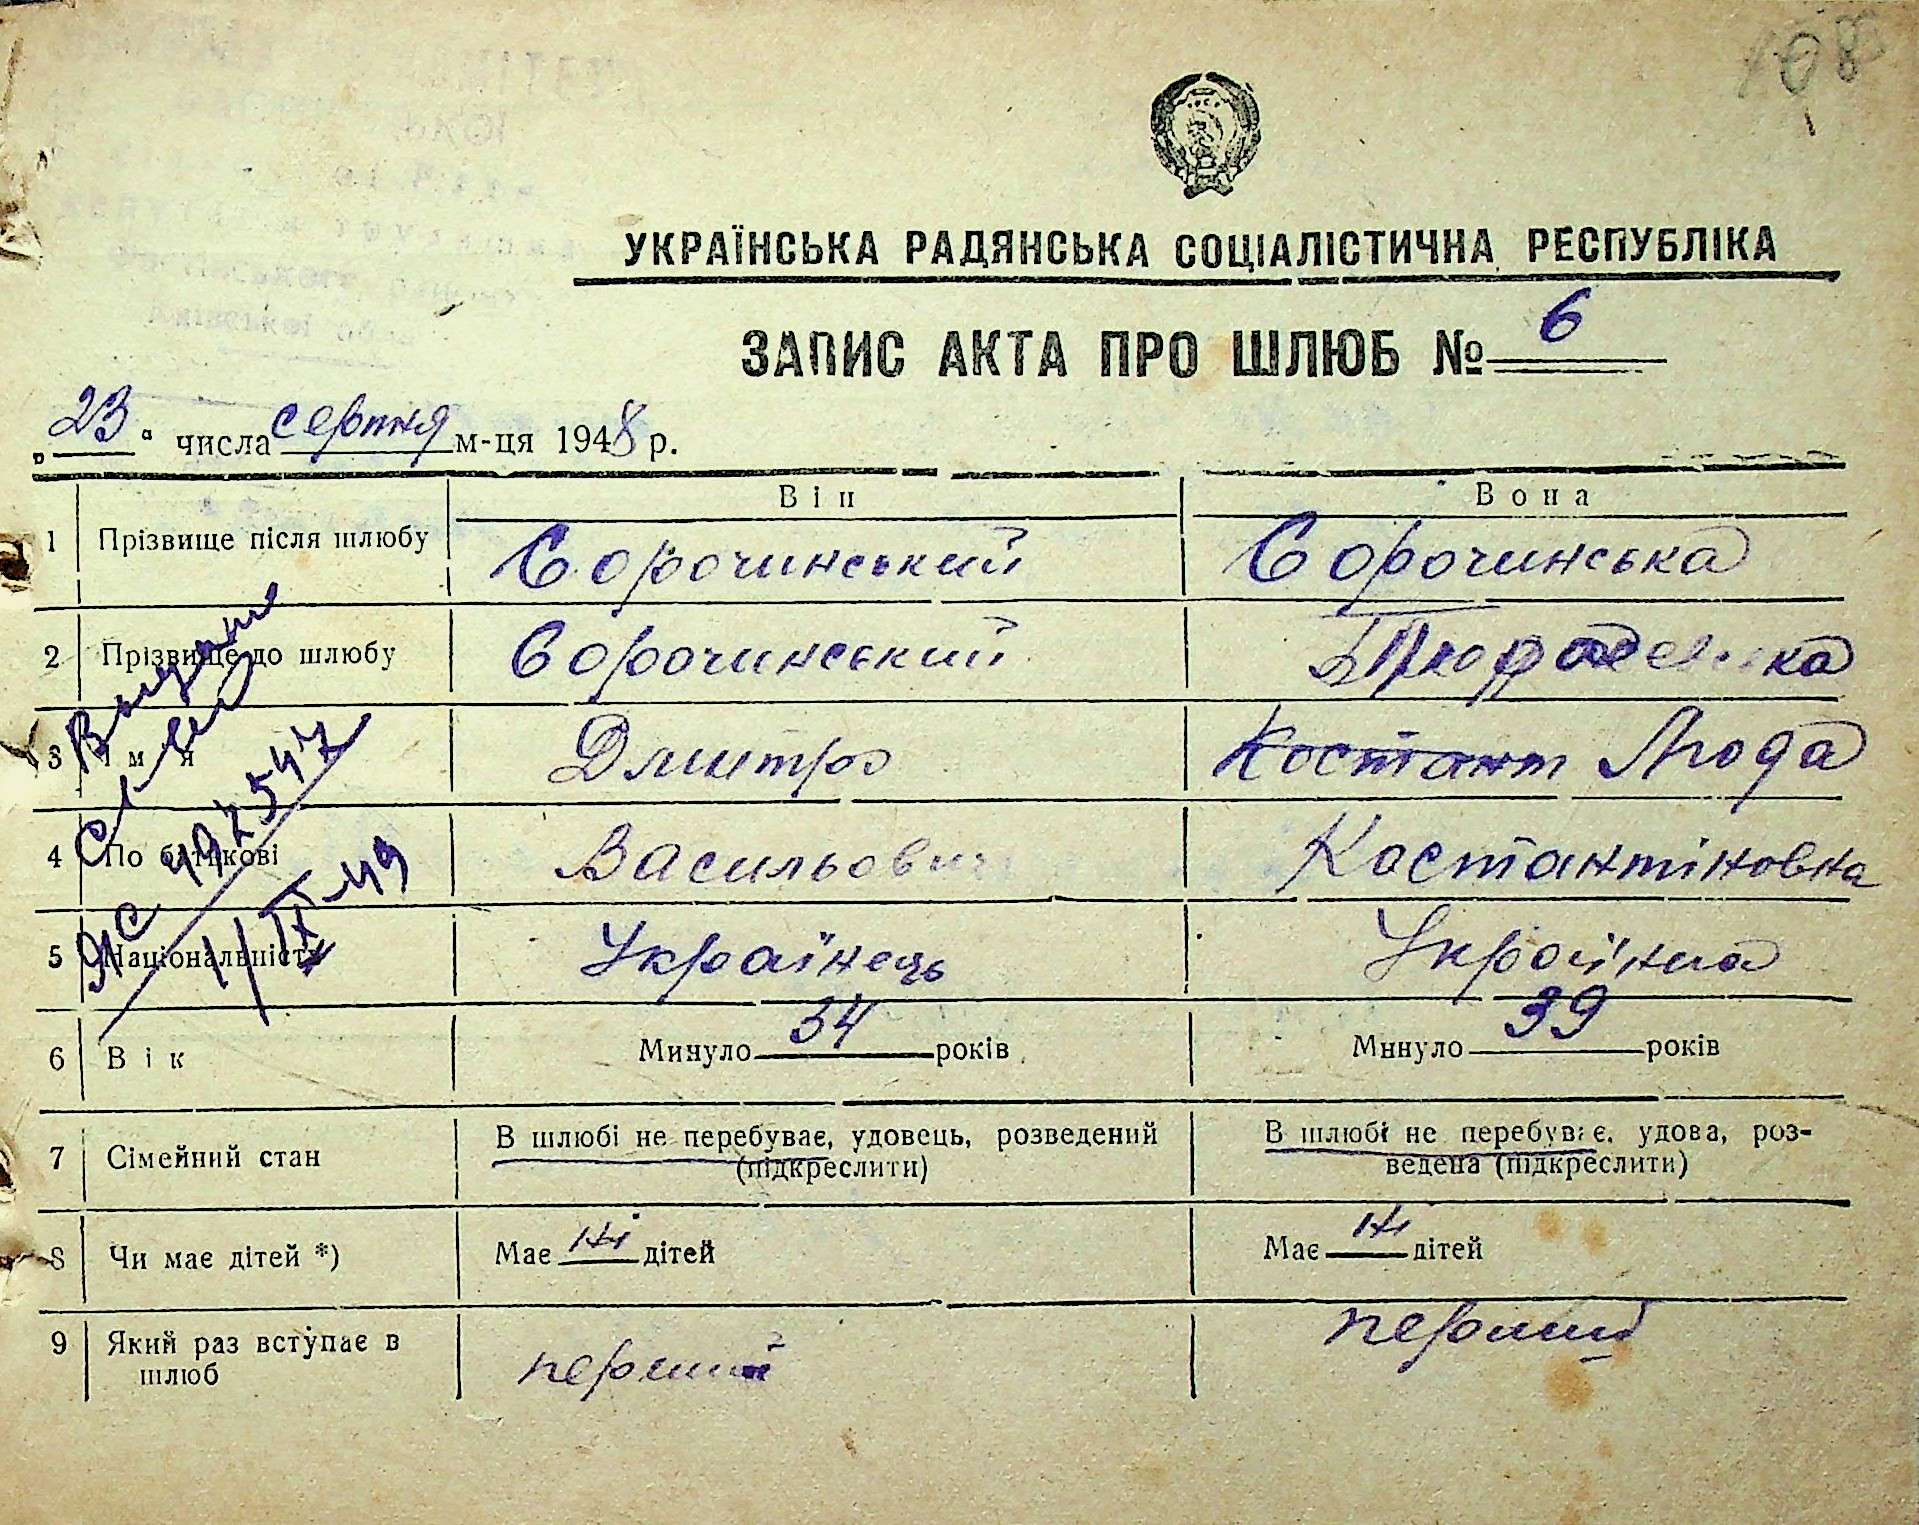 108
УКРАЇНСЬКА РАДЯНСЬКА СОЦІАЛІСТИЧНА РЕСПУБЛІКА
ЗАПИС АКТА ПРО ШЛЮБ № 6
„23“ числа серпня м-ця 1948 р.
Він Вона
1 Прізвище після шлюбу Сорочинський Сорочинська
2 Прізвище до шлюбу Сорочинський
3 Імя Дмитро Костант Люда
4 По батькові Васильович Костантіновна
5 Національність Українець Українка
6 Вік Минуло 34 років Минуло 39 років
7 Сімейний стан В шлюбі не перебуває, удовець, розведений (підкреслити) В шлюбі не перебуває, удова, роз-
ведена (підкреслити)
8 Чи має дітей *) Має ні дітей Має ні дітей
9 Який раз вступає в шлюб перший перший
ЯС 492547
1/IX-49